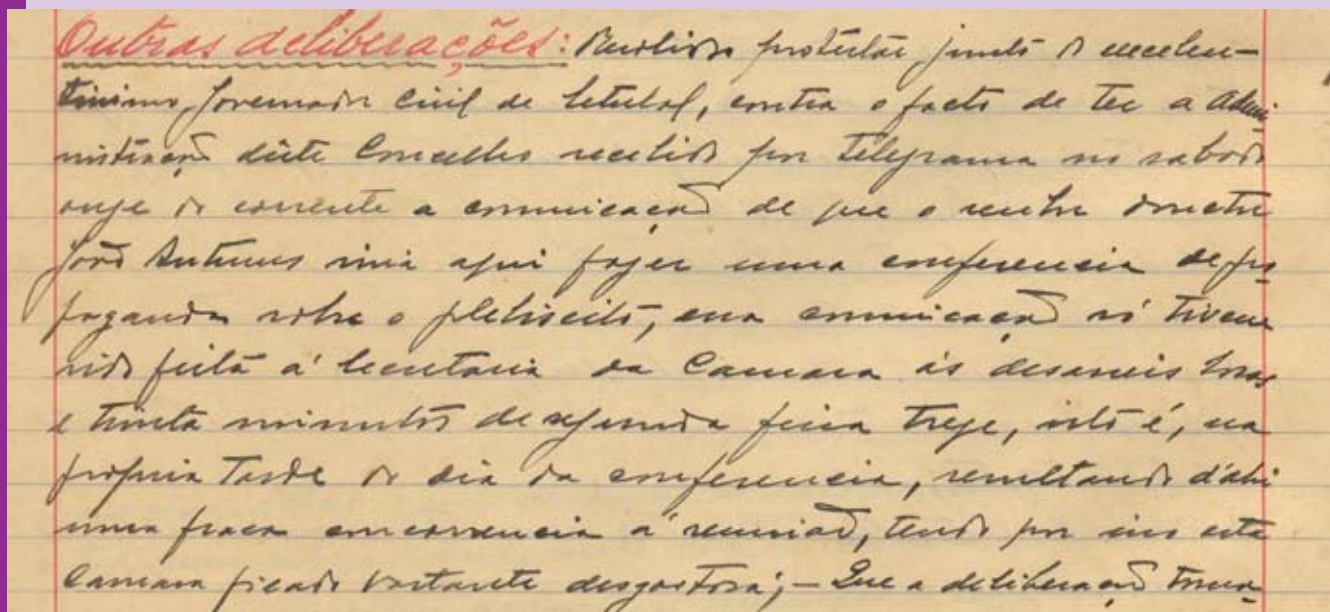 Outras deliberações: Resolvido protestar junto do excelen-
tissimo Governador Civil de Setubal, contra o facto de ter a Admi-
nistração dêste Concelho recebido por telegrama no sabado
onze do corrente a comunicação de que o senhor doutor
João Antunes viria aqui fazer uma conferencia de pro-
paganda sobre o plebiscito, essa comunicação só tivesse
sido feita á Secretaria da Camara ás desasseis horas
e trinta minutos de segunda feira treze, isto é, na
própria tarde do dia da conferencia, resultando d'ahi
uma fraca concorrencia á reunião, tendo por isso esta
Camara ficado bastante desgostosa; - Que a deliberação toma-